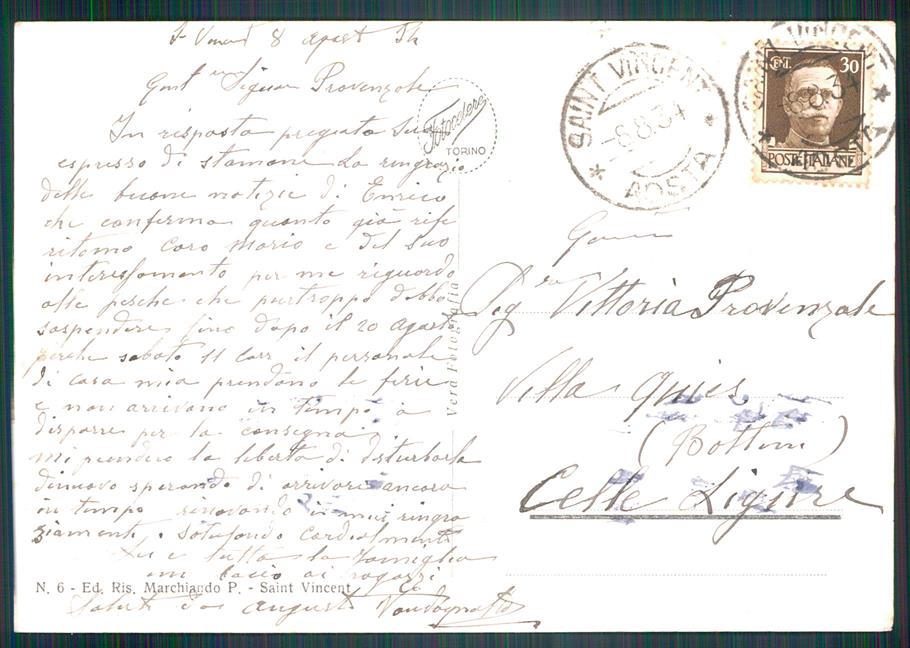 8 34
Gent Signora Provenzale
In risposta pregiata Sua
espresso di stamane La ringrazio
delle buone notizie di Enrico
che conferma quanto già rife
ritomo Caro Mario e del suo
interessamento per me riguardo
alle pesche che purtroppo debbo
sospendere fino dopo il 20 Agosto
perche sabato 11 corr il personale
di casa mia prendono le ferie
e non arrivano in tempo a
disporre per la consegna
mi prendero la libertà di disturbarla
dinuovo sperando di arrivare ancora
in tempo rinovando i miei ringra
ziamenti, cordialmente
Lei e tutta la famiglia
un bacio ai ragazzi
N. 6 - Ed. Ris. Marchiando P. - Saint Vincent
Saluti da August
Fotocelere
TORINO
Vera Fotografia
SAINT VINCENT
-8.8.34
* AOSTA *
SAINT VINCENT
-8.8.34
CENT. 30
POSTE ITALIANE
Sig ra Vittoria Provenzale
Villa Quies
(Bottini)
Celle Ligure